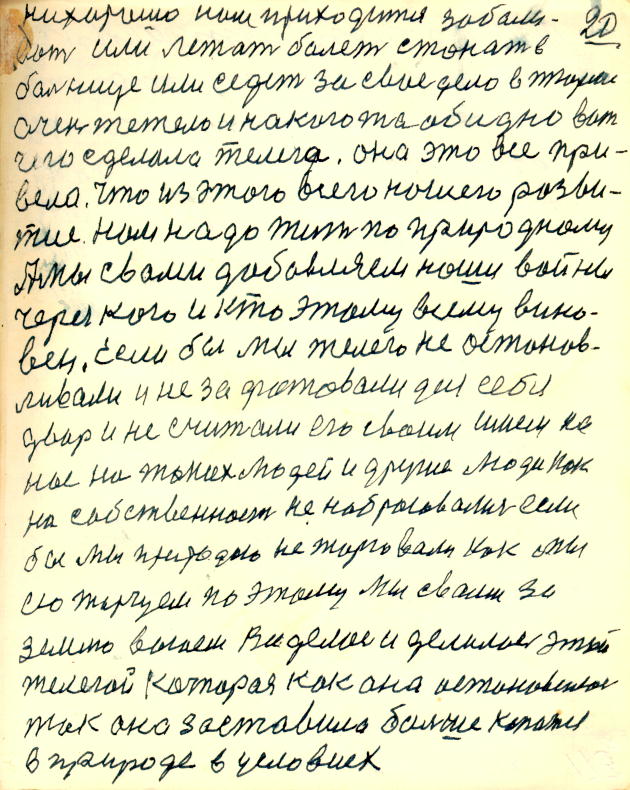 нихорошо нам приходится забали- 20
вот или лежат болет стонат в
болнице или седет за свое дело в тюрме
очен тежело и накого то обидно вот
чего сделала телега. она это все при-
вела. что из этого всего ношего розви-
тие. нам надо жит по природному
А мы свами добовляем наши войны
через кого и кто этому всему вино-
вен. если бы мы телего не останов-
ливали и не
для себя
двор и не считали его своим
на таких людей и другие люди как
на собственност не набросовалис если
бы мы природно не торговали как мы
ею торгуем по этому мы свами за
землю воюем Виделос и делилос этой
телегой которая как она остановилос
так она заставила болше копатся
в природе в условиех